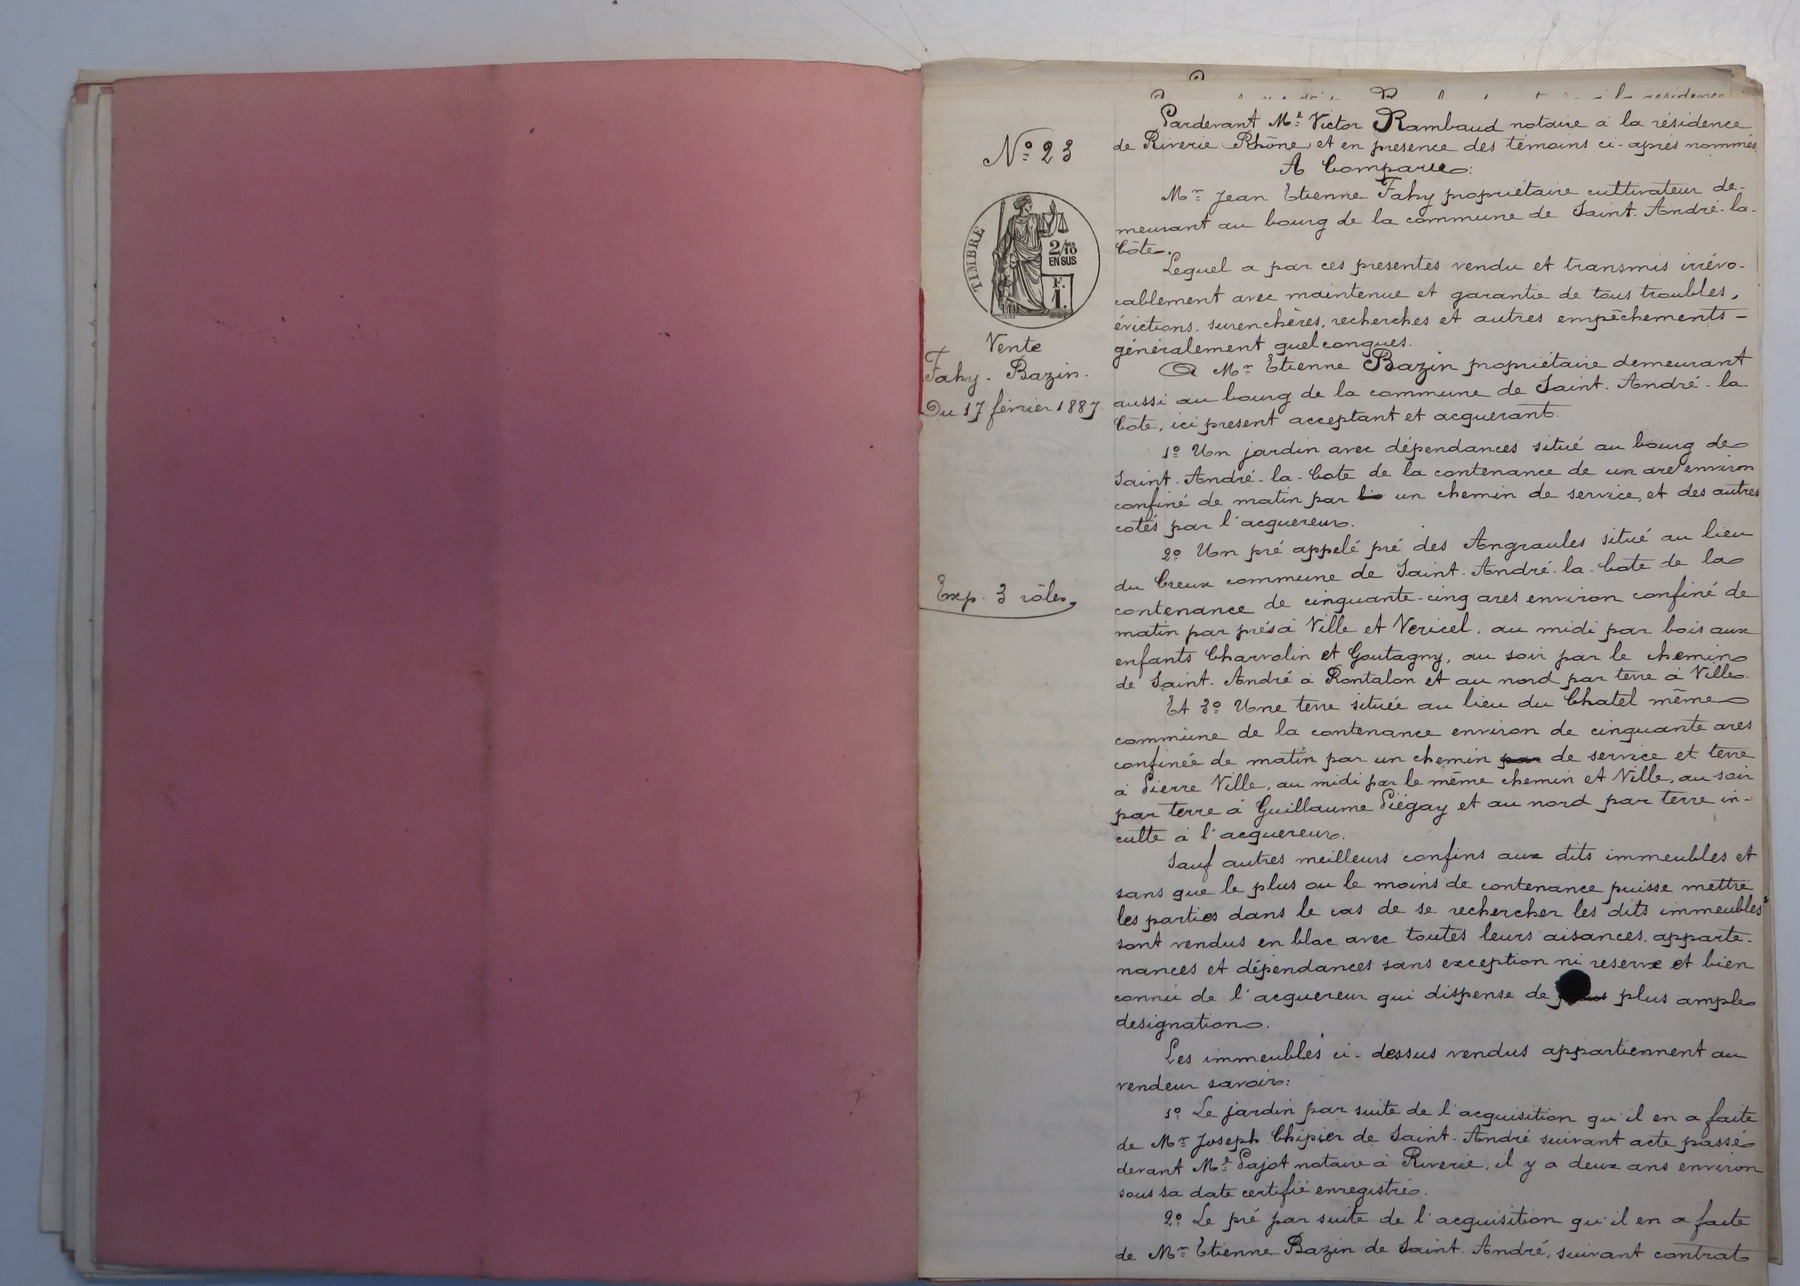 Nº 23
TIMBRE
2/10 EN SUS
F. 1.
Vente
Fahy - Bazin.
Du 17 février 1887.
Exp. 3 rôles,
Pardevant Me Victor Rambaud notaire à la résidence
de Riverie (Rhône) et en présence des témoins ci-après nommés,
A Comparu:
Mr Jean Etienne Fahy propriétaire cultivateur de-
meurant au bourg de la commune de Saint-André-la-
Côte.
Lequel a par ces présentes vendu et transmis irrévo-
cablement avec maintenue et garantie de tous troubles,
évictions, surenchères, recherches et autres empêchements-
généralement quelconques.
A Mr Etienne Bazin propriétaire demeurant
aussi au bourg de la commune de Saint-André-la-
Côte, ici présent acceptant et acquérant.
1º Un jardin avec dépendances situé au bourg de
Saint-André-la-Côte de la contenance de un are environ
confiné de matin par un chemin de service, et des autres
cotés par l'acquereur.
2º Un pré appelé pré des Angraules situé au lieu
du Creux commune de Saint-André-la-Côte de la
contenance de cinquante-cinq ares environ confiné de
matin par prés à Ville et Vericel, au midi par bois aux
enfants Charvolin et Goutagny, au soir par le chemin
de Saint-André à Rontalon et au nord par terre à Ville.
Et 3º Une terre située au lieu du Chatel même
commune de la contenance environ de cinquante ares
confinée de matin par un chemin par de service et terre
à Pierre Ville, au midi par le même chemin et Ville, au soir
par terre à Guillaume Piégay et au nord par terre in-
culte à l'acquereur.
Sauf autres meilleurs confins aux dits immeubles et
sans que le plus ou le moins de contenance puisse mettre
les parties dans le cas de se rechercher les dits immeubles
sont vendus en bloc avec toutes leurs aisances, apparte-
nances et dépendances sans exception ni reserve et bien
connu de l'acquereur qui dispense de plus ample
designation.
Les immeubles ci-dessus vendus appartiennent au
vendeur savoir:
1º Le jardin par suite de l'acquisition qu'il en a faite
de Mr Joseph Chipier de Saint-André suivant acte passé
devant Me Pajot notaire à Riverie, il y a deux ans environ
sous sa date certifié enregistré.
2º Le pré par suite de l'acquisition qu'il en a faite
de Mr Etienne Bazin de Saint-André, suivant contrat